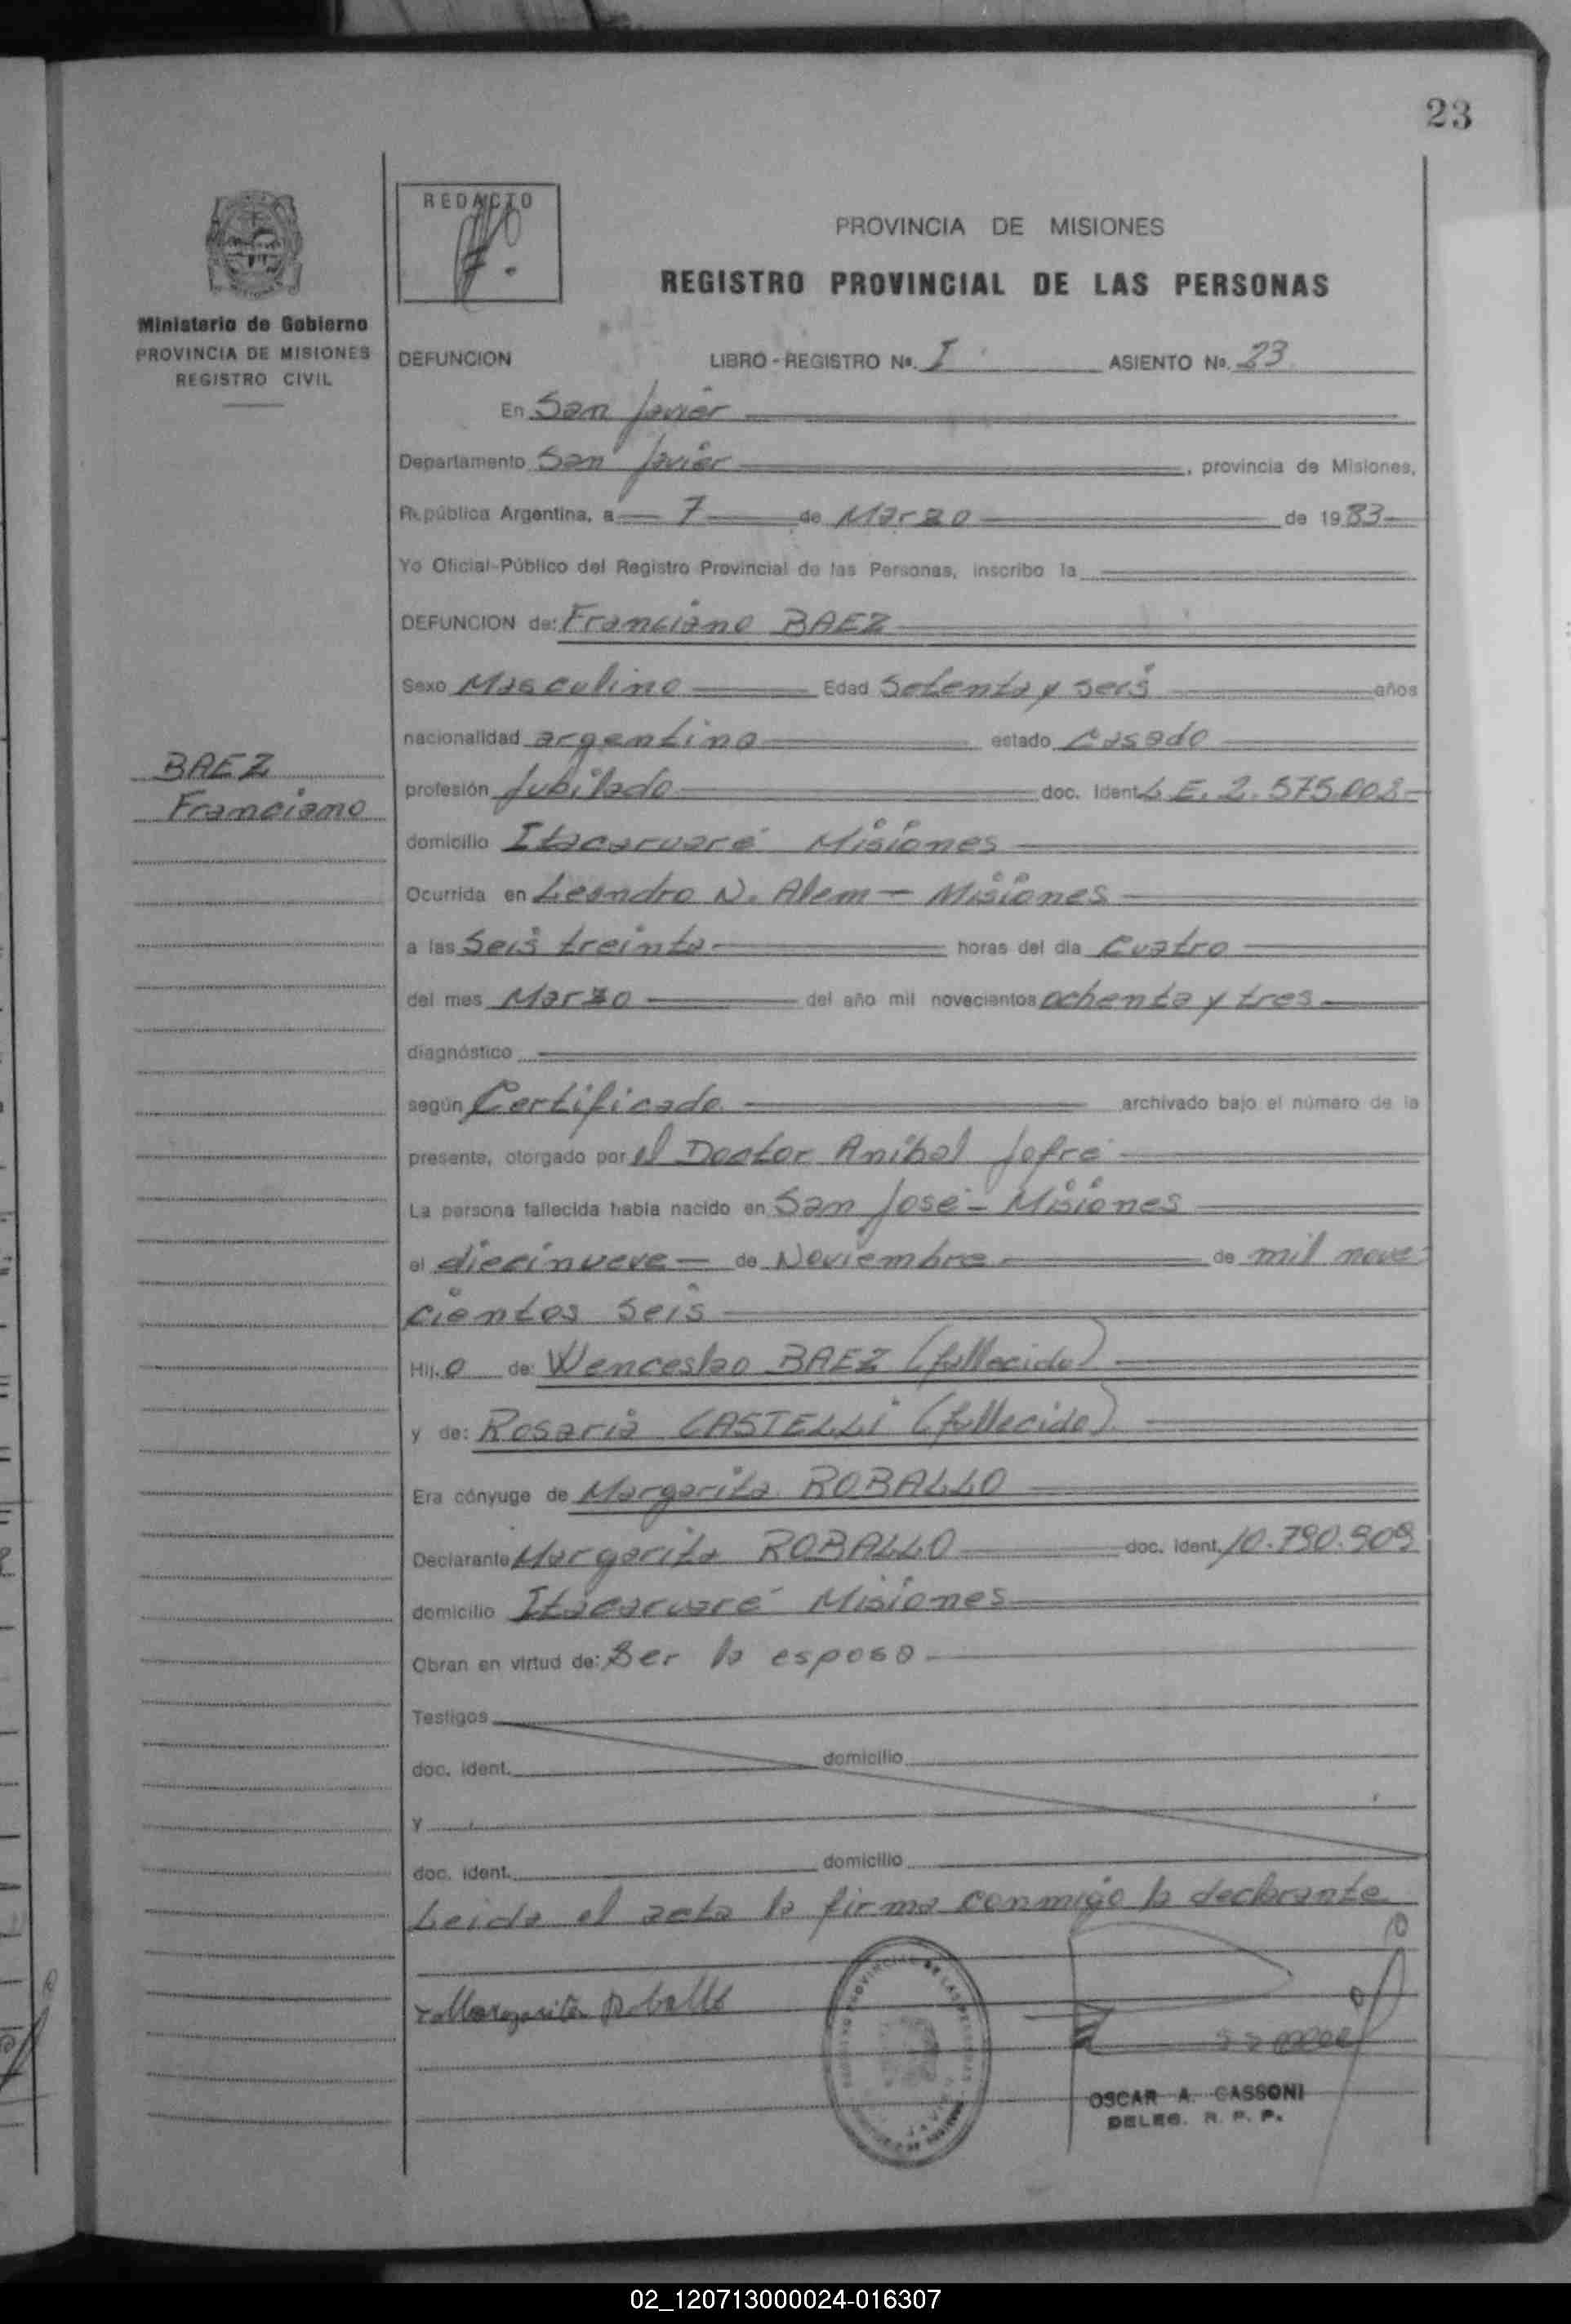 23
REDACTO
PROVINCIA DE MISIONES
REGISTRO PROVINCIAL DE LAS PERSONAS
Ministerio de Gobierno
PROVINCIA DE MISIONES
REGISTRO CIVIL
DEFUNCION LIBRO - REGISTRO No. I ASIENTO No. 23
En San Javier
Departamento San Javier, provincia de Misiones,
República Argentina, a 7 de Marzo de 1983
Yo Oficial Público del Registro Provincial de las Personas, inscribo la
DEFUNCION de: Franciano BAEZ
Sexo Masculino Edad Setenta y seis años
nacionalidad argentina estado Casado
BAEZ
Franciano
profesión Jubilado doc. Ident. L.E. 2.575.008
domicilio Itacaruaré Misiones
Ocurrida en Leandro N. Alem - Misiones
a las Seis treinta horas del día Cuatro
del mes Marzo del año mil novecientos ochenta y tres
diagnóstico
según Certificado archivado bajo el número de la
presente, otorgado por el Doctor Anibal Jofré
La persona fallecida había nacido en San José - Misiones
el diecinueve de Noviembre de mil nove
cientos seis
Hijo de: Wenceslao BAEZ (fallecido)
y de: Rosaria CASTELLI (fallecida)
Era cónyuge de Margarita ROBALLO
Declarante Margarita ROBALLO doc. Ident. 10.790.909
domicilio Itacaruaré Misiones
Obran en virtud de: Ser la esposa
Testigos
doc. ident. domicilio
y
doc. ident. domicilio
Leida el acta la firma conmigo la declarante
Margarita Roballo
OSCAR A. CASSONI
DELEG. R. P. P.
02_120713000024-016307